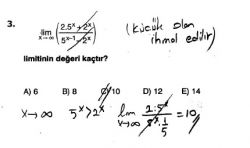 3.
lim x→∞ (2.5ˣ + 2ˣ / 5ˣ⁻¹ − 2ˣ) (küçük olan
ihmal edilir)
limitinin değeri kaçtır?
A) 6 B) 8 C) 10 D) 12 E) 14
x→∞ 5ˣ > 2ˣ lim x→∞ 2.5ˣ / 5ˣ.1/5 = 10